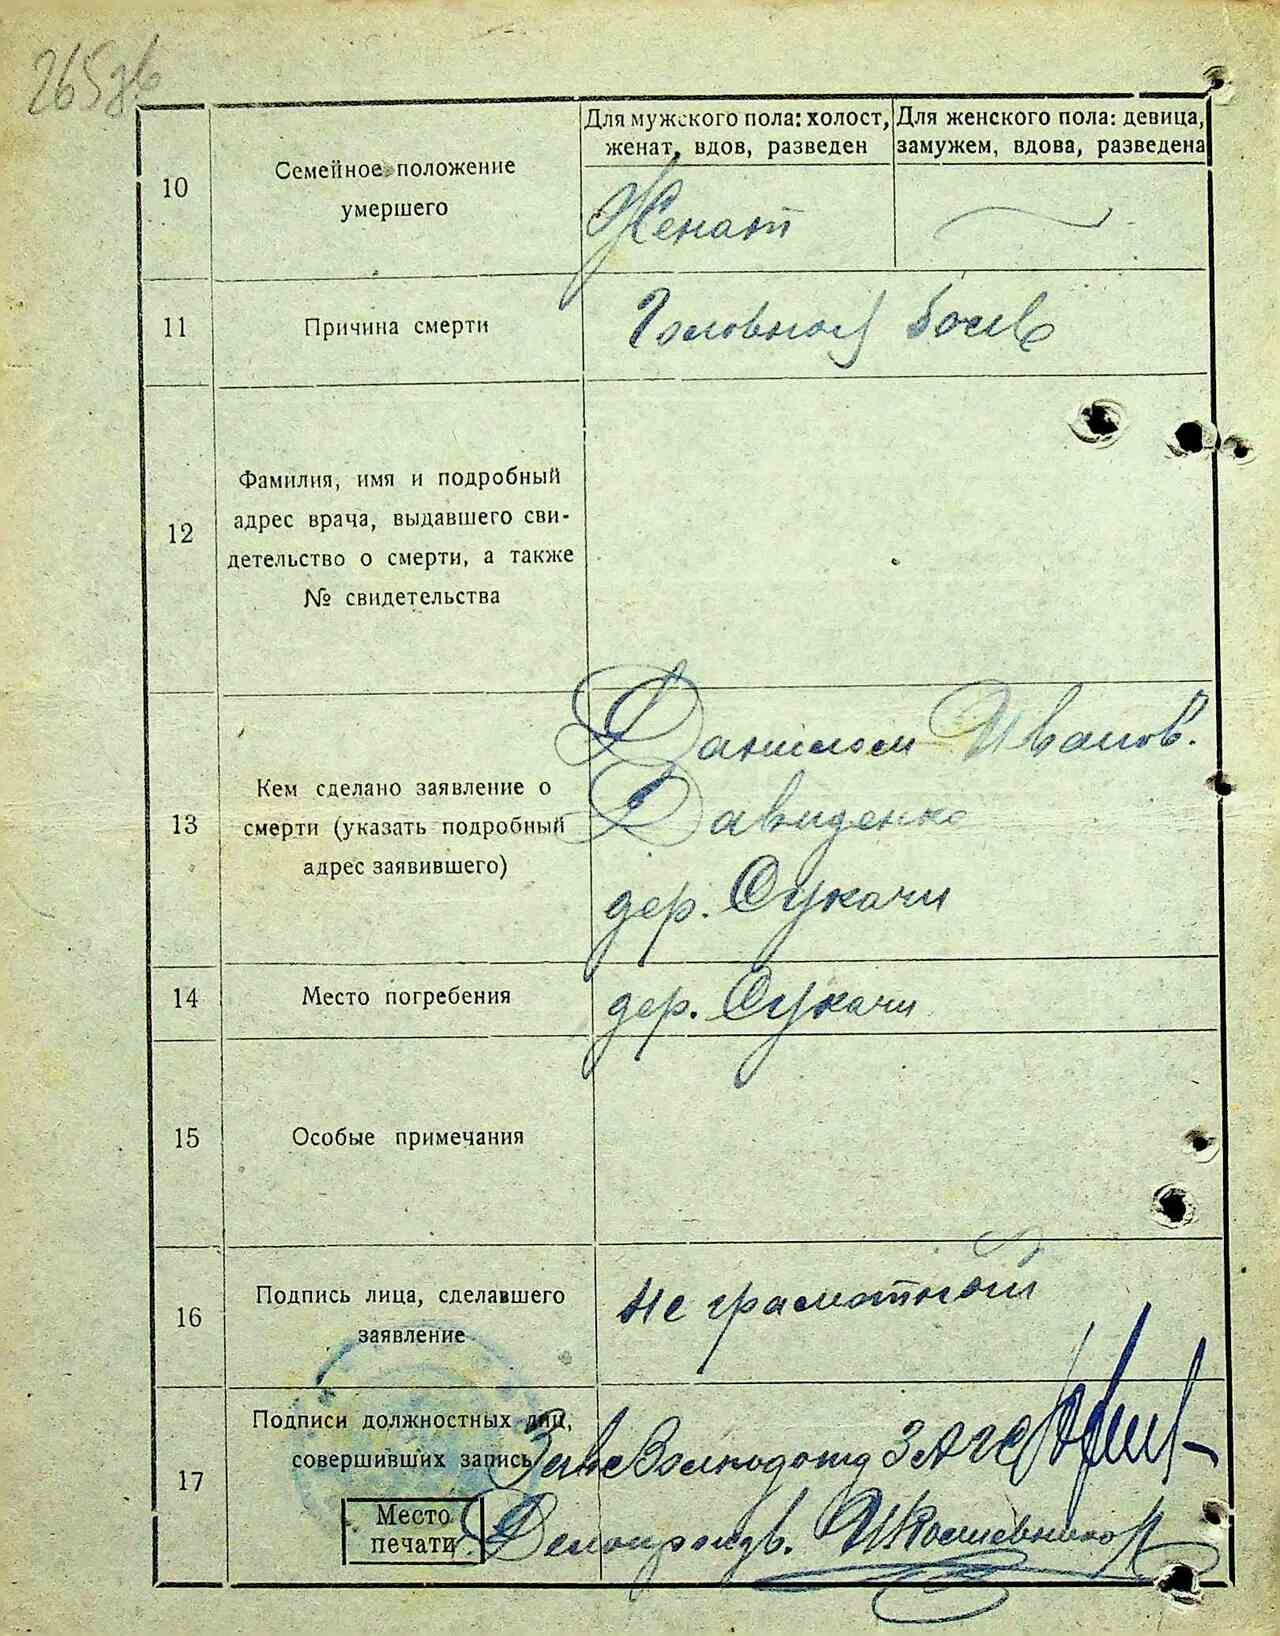 265
10
Семейное положение
умершего
Для мужского пола: холост,
женат, вдов, разведен
Для женского пола: девица,
замужем, вдова, разведена
Женат
11
Причина смерти
Головная боль
12
Фамилия, имя и подробный
адрес врача, выдавшего сви-
детельство о смерти, а также
№ свидетельства
13
Кем сделано заявление о
смерти (указать подробный
адрес заявившего)
Данилом Иванов.
Давиденко
дер. Сукачи
14
Место погребения
дер. Сукачи
15
Особые примечания
16
Подпись лица, сделавшего
заявление
не грамотной
17
Подписи должностных лиц,
совершивших запись
ЗАГС
Место
печати
Делопроизв.